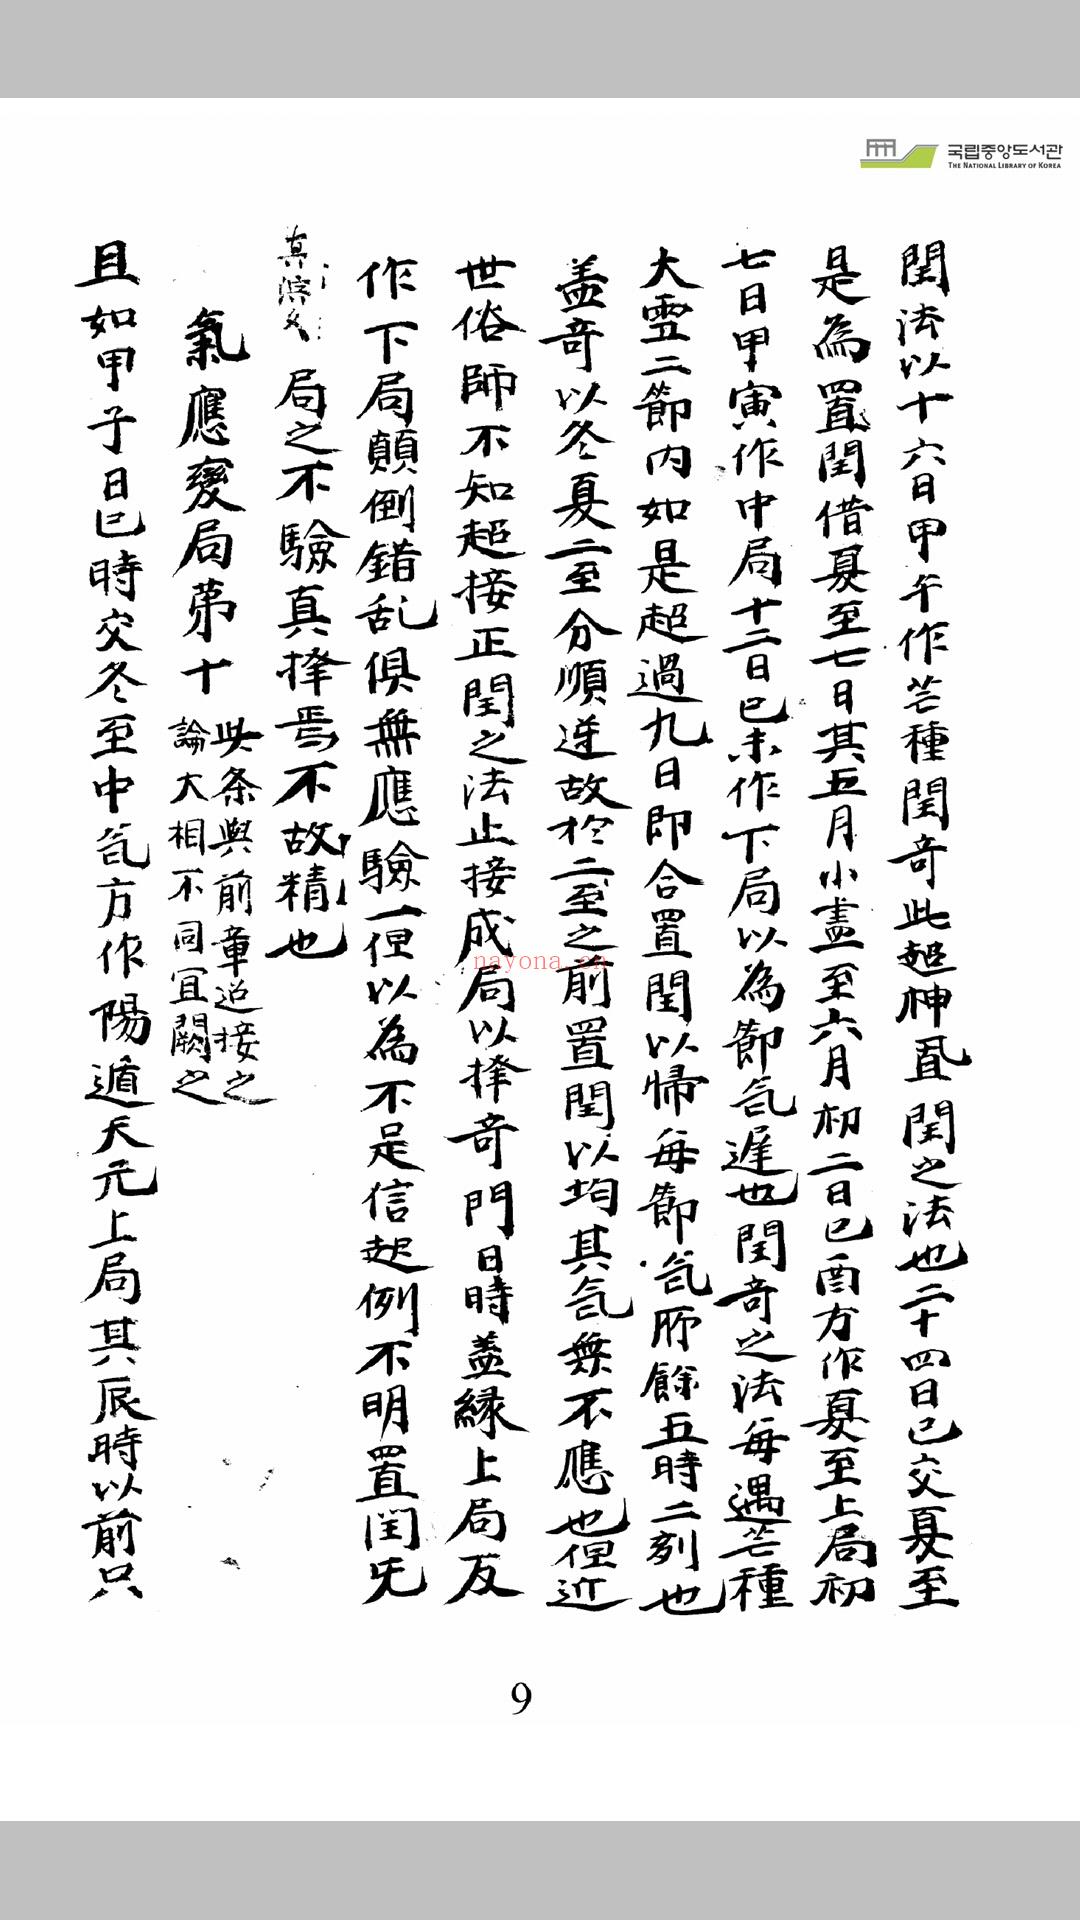 국립중앙도서관
THE NATIONAL LIBRARY OF KOREA
閏法以十六日甲午作芒種閏奇此超神置閏之法也二十四日已交夏至
是為置閏借夏至七日其五月小盡至六月初二日已酉方作夏至上局初
七日甲寅作中局十二日已未作下局以為節氣遲也閏奇之法每遇芒種
大雪二節內如是超過九日即合置閏以歸每節氣所餘五時二刻也
盖奇以冬夏二至分順逆故扵二至之前置閏以均其氣無不應也但近
世俗師不知超接正閏之法止接成局以擇奇門日時盖緣上局反
作下局顛倒錯乱俱無應驗一但以為不足信起例不明置闰旡
局之不驗真擇焉不故精也
氣應變局苐十
此条與前章迫接之
論大相不同宜闕之
且如甲子日巳時交冬至中氣方作陽遁天元上局其辰時以前只
nayona.cn
9